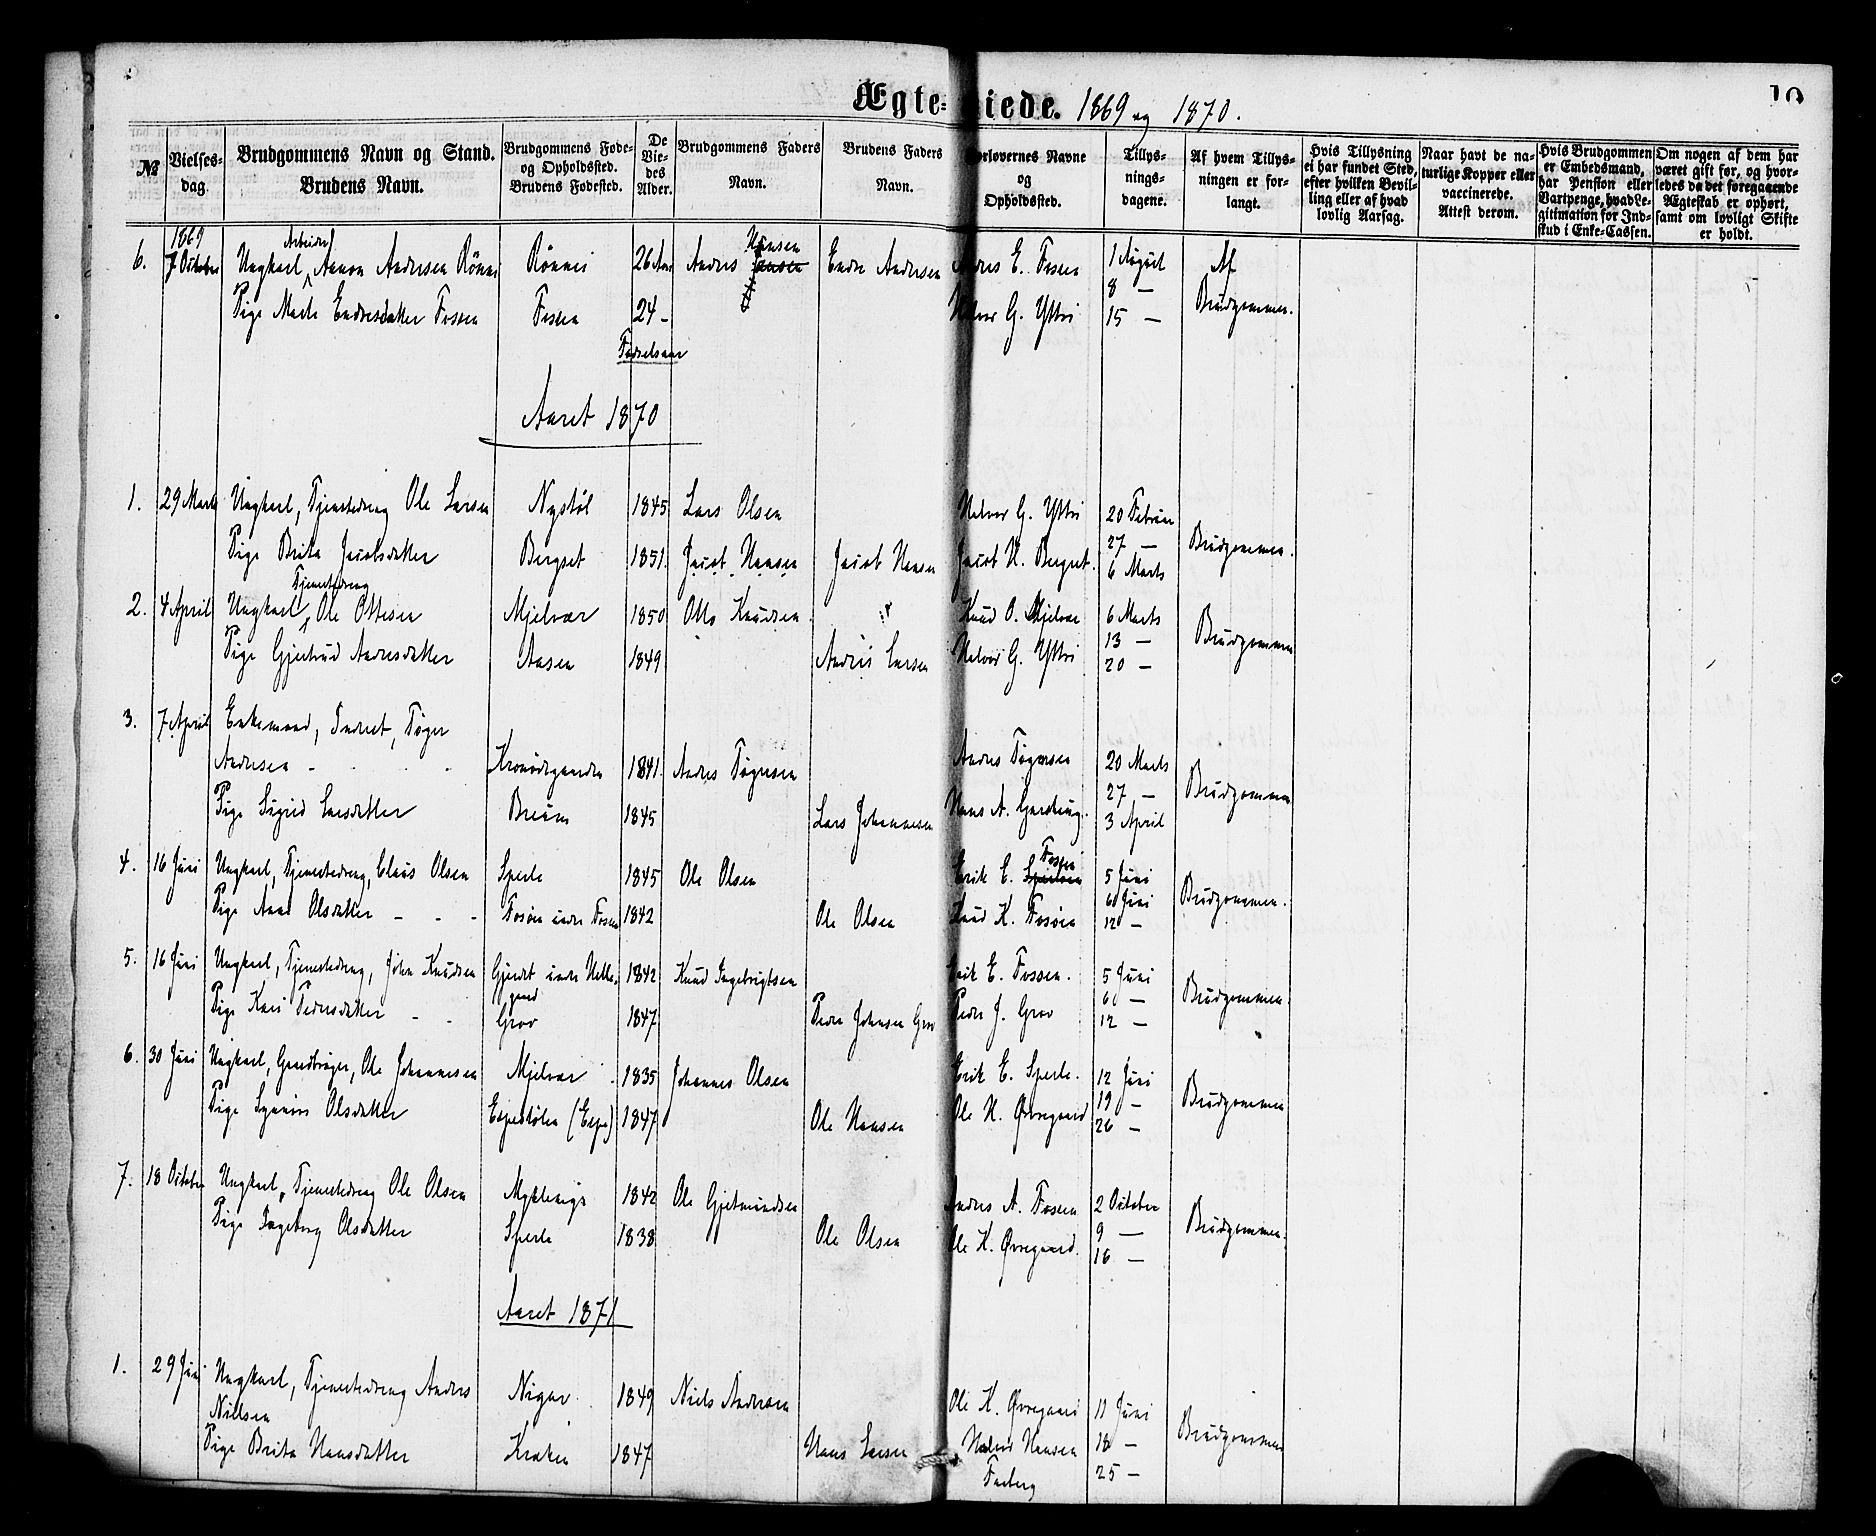 Ægte-viede. 1869 og 1870.
10
№
Vielses-dag.
Brudgommens Navn og Stand.
Brudens Navn.
Brudgommens Føde- og Opholdssted.
Brudens Fødested.
De Vie-des Alder.
Brudgommens Faders Navn.
Brudens Faders Navn.
Forlovernes Navne og Opholdssted.
Tillys-nings-dagene.
Af hvem Tillys-ningen er for-langt.
Hvis Tillysning ei har fundet Sted, efter hvilken Bevil-ling eller af hvad lovlig Aarsag.
Naar havt de na-turlige Kopper eller vaccinerede. Attest derom.
Hvis Brudgommen er Embedsmand, har Pension eller Vartpenge, hvad Le-gitimation for Ind-skud i Enke-Cassen.
Om nogen af dem har været gift før, og hvor-ledes da det foregaaende Ægteskab er ophørt, samt om lovligt Skifte er holdt.
1869
6. 7 October Ungkarl, Arbeider Aamon Andersen Rönnei Rönnei 26 Aar Anders Hansen Endre Andersen Anders E. Fossen 1 August Af
8 —
Pige Marta Endresdatter Fossen Fossen 24 - Halvor G. Yttri 15 — Brudgommen.
Fødselsaar
Aaret 1870
1. 29 Marts Ungkarl, Tjenestedreng Ole Larsen Nystöl 1845 Lars Olsen Halvor G. Yttri 20 Februar
27 — Brudgommen.
Pige Brita Jacobsdatter Bergset 1851. Jacob Hansen Jacob Hansen Jacob H. Bergset. 6 Marts
Tjenestedreng
2. 4 April Ungkarl, Ole Ottesen Mjelvær 1850 Otto Knudsen Knud O. Mjelvær 6 Marts
13 — Brudgommen
Pige Gjertrud Andersdatter Aasen 1849 Anders Larsen Halvor G. Yttri 20 —
3. 7 April Enkemand, Inderst, Töger
Andersen - Kronödegaarden 1841. Anders Tögersen Anders Tögersen 20 Marts
27 — Brudgommen
Pige Sigrid Larsdatter Breum 1845 Lars Johannesen Hans A. 3 April
4. 16 Juni Ungkarl, Tjenestedreng, Claus Olsen Sperle 1845 Ole Olsen Erik E. Fossen 5 Juni
6 Juni Brudgommen.
Pige Anna Olsdatter - - - Fosöen under Fossen 1842 Ole Olsen Knud K. Fosöen 12 —
5. 16 Juni Ungkarl, Tjenestedreng, John Knudsen under 1842 Knud Ingebrigtsen Erik E. Fossen. 5 Juni
6 — Brudgommen.
Pige Kari Pedersdatter - - Grov 1847 Peder Johnsen Grov Peder J. Grov 12 —
6. 30 Juni Ungkarl, Gaardbruger, Ole Johannesen Mjelvær 1835 Johannes Olsen Erik E. Sperle. 12 Juni
19 — Brudgommen
Pige Synnöv Olsdatter Espestölen (Espe) 1847 Ole Hansen Ole H. Øvregaard 26 —
7. 18 October Ungkarl, Tjenestedreng Ole Olsen Myklevigs 1842 Ole Gjetmundsen Anders A. Fossen 2 October
9 — Brudgommen.
Pige Ingeborg Olsdatter Sperle 1838 Ole Olsen Ole K. Øvregaard. 16 —
Aaret 1871
1. 29 Juni Ungkarl, Tjenestedreng Anders Nigar 1849 Niels Andersen Ole K. Øvregaard 11 Juni
Nielsen 18 — Brudgommen
Pige Brita Hansdatter Kraken 1847 Hans Larsen Halvor Hansen 25 —
Faaberg